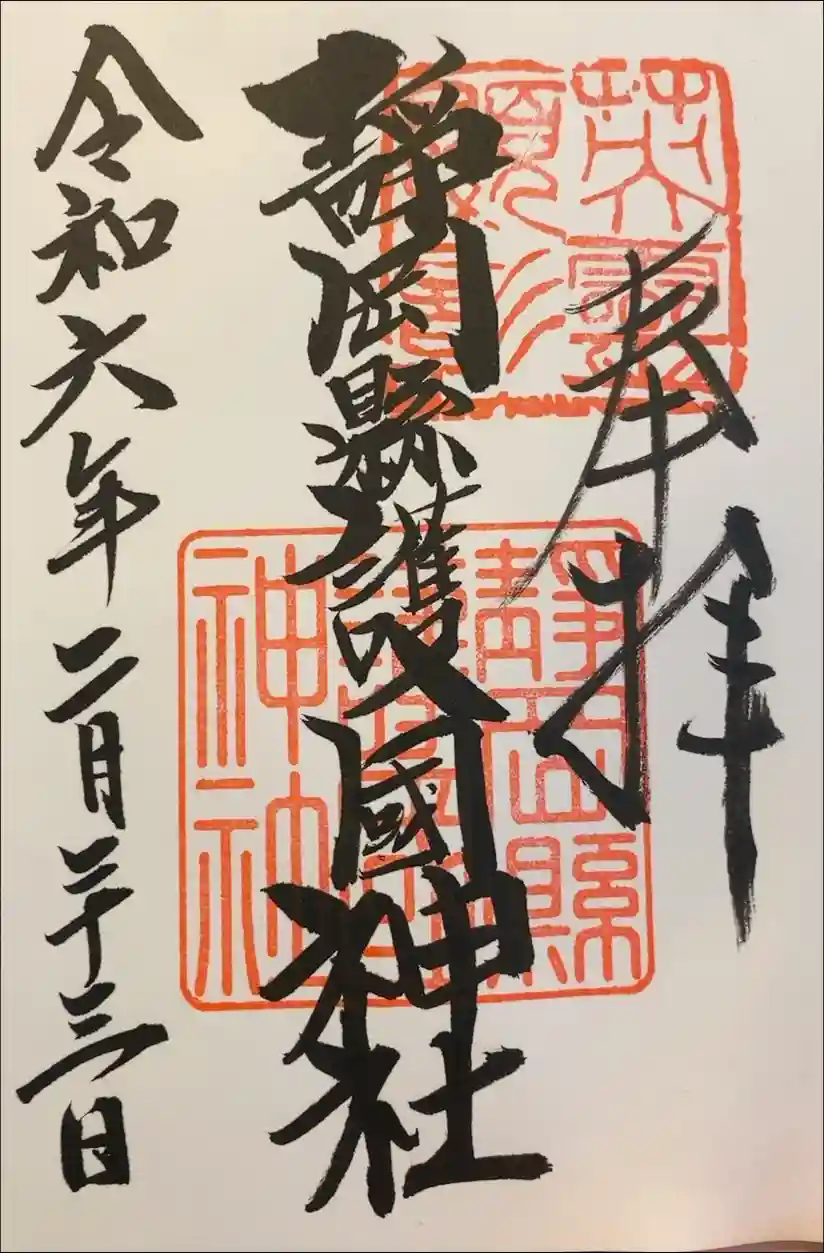 奉拝
英靈
顯彰
靜岡縣護國神社
靜岡縣
護國
神社
令和六年二月二十三日